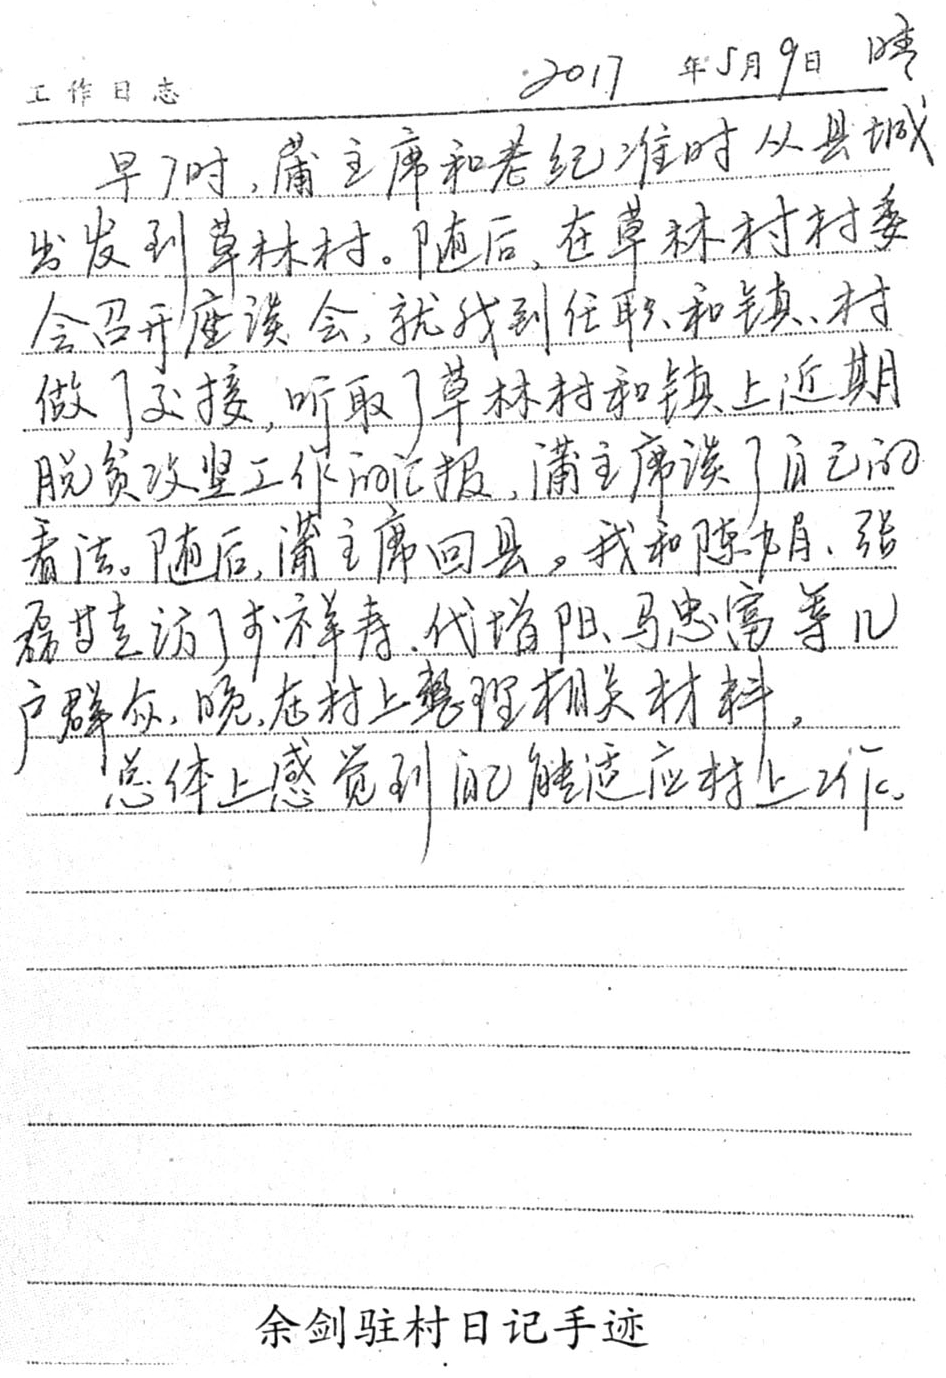 工作日志 2017年5月9日 晴
早7时,蒲主席和老纪准时从县城
出发到草林村。随后,在草林村村委
会召开座谈会,就我到任职和镇、村
做了交接,听取了草林村和镇上近期
脱贫攻坚工作的汇报,蒲主席谈了自己的
看法。随后,蒲主席回县。我和陈九月、张
磊等走访了祥寿、代增阳、马忠富等几
户群众,晚,在村上整理相关材料。
总体上感觉到自己能适应村上工作。
余剑驻村日记手迹